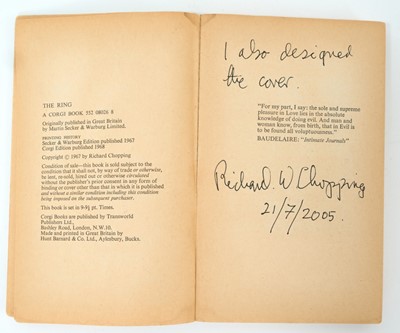 THE RING
A CORGI BOOK 552 08026 8
Originally published in Great Britain
by Martin Secker & Warburg Limited.
PRINTING HISTORY
Secker & Warburg Edition published 1967
Corgi Edition published 1968
Copyright © 1967 by Richard Chopping
Condition of sale—this book is sold subject to the
condition that it shall not, by way of trade or otherwise,
be lent, re-sold, hired out or otherwise circulated
without the publisher's prior consent in any form of
binding or cover other than that in which it is published
and without a similar condition including this condition
being imposed on the subsequent purchaser.
This book is set in 9-9½ pt. Times.
Corgi Books are published by Transworld
Publishers Ltd.,
Bashley Road, London, N.W.10.
Made and printed in Great Britain by
Hunt Barnard & Co. Ltd., Aylesbury, Bucks.
I also designed
the cover.
"For my part, I say: the sole and supreme
pleasure in Love lies in the absolute
knowledge of doing evil. And man and
woman know, from birth, that in Evil is
to be found all voluptuousness."
BAUDELAIRE: "Intimate Journals"
Richard W Chopping
21/7/2005.